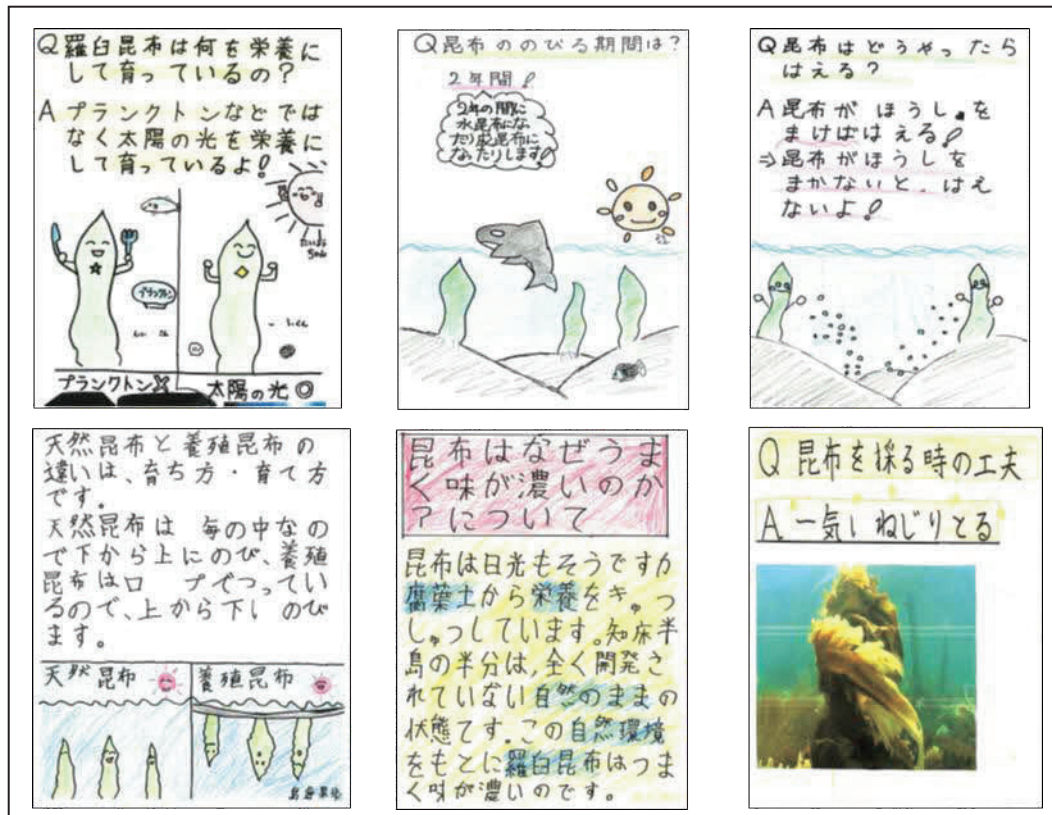 Q羅臼昆布は何を栄養に
して育っているの？
Aプランクトンなどでは
なく太陽の光を栄養に
して育っているよ！
たいよう
ちゃん
プランクトン
プランクトン✕
太陽の光◎
Q昆布ののびる期間は？
2年間！
2年の間に
水昆布にな
たり成昆布に
なったりします！
Q昆布はどうやったら
はえる？
A昆布がほうしを
まけばはえる！
⇒昆布がほうしを
まかないと、はえ
ないよ！
天然昆布と養殖昆布の
違いは、育ち方・育て方
です。
天然昆布は 毎の中なの
で下から上にのび、養殖
昆布はロープでつってい
るので、上から下に のび
ます。
天然昆布
養殖昆布
昆布はなぜうま
く味が濃いのか
？について
昆布は日光もそうですか
腐葉土から栄養をきゅっ
しゅっしています。知床半
島の半分は、全く開発さ
れていない自然のままの
状態です。この自然環境
をもとに羅臼昆布はつま
く味が濃いのです。
Q 昆布を採る時の工夫
A. 一気にねじりとる